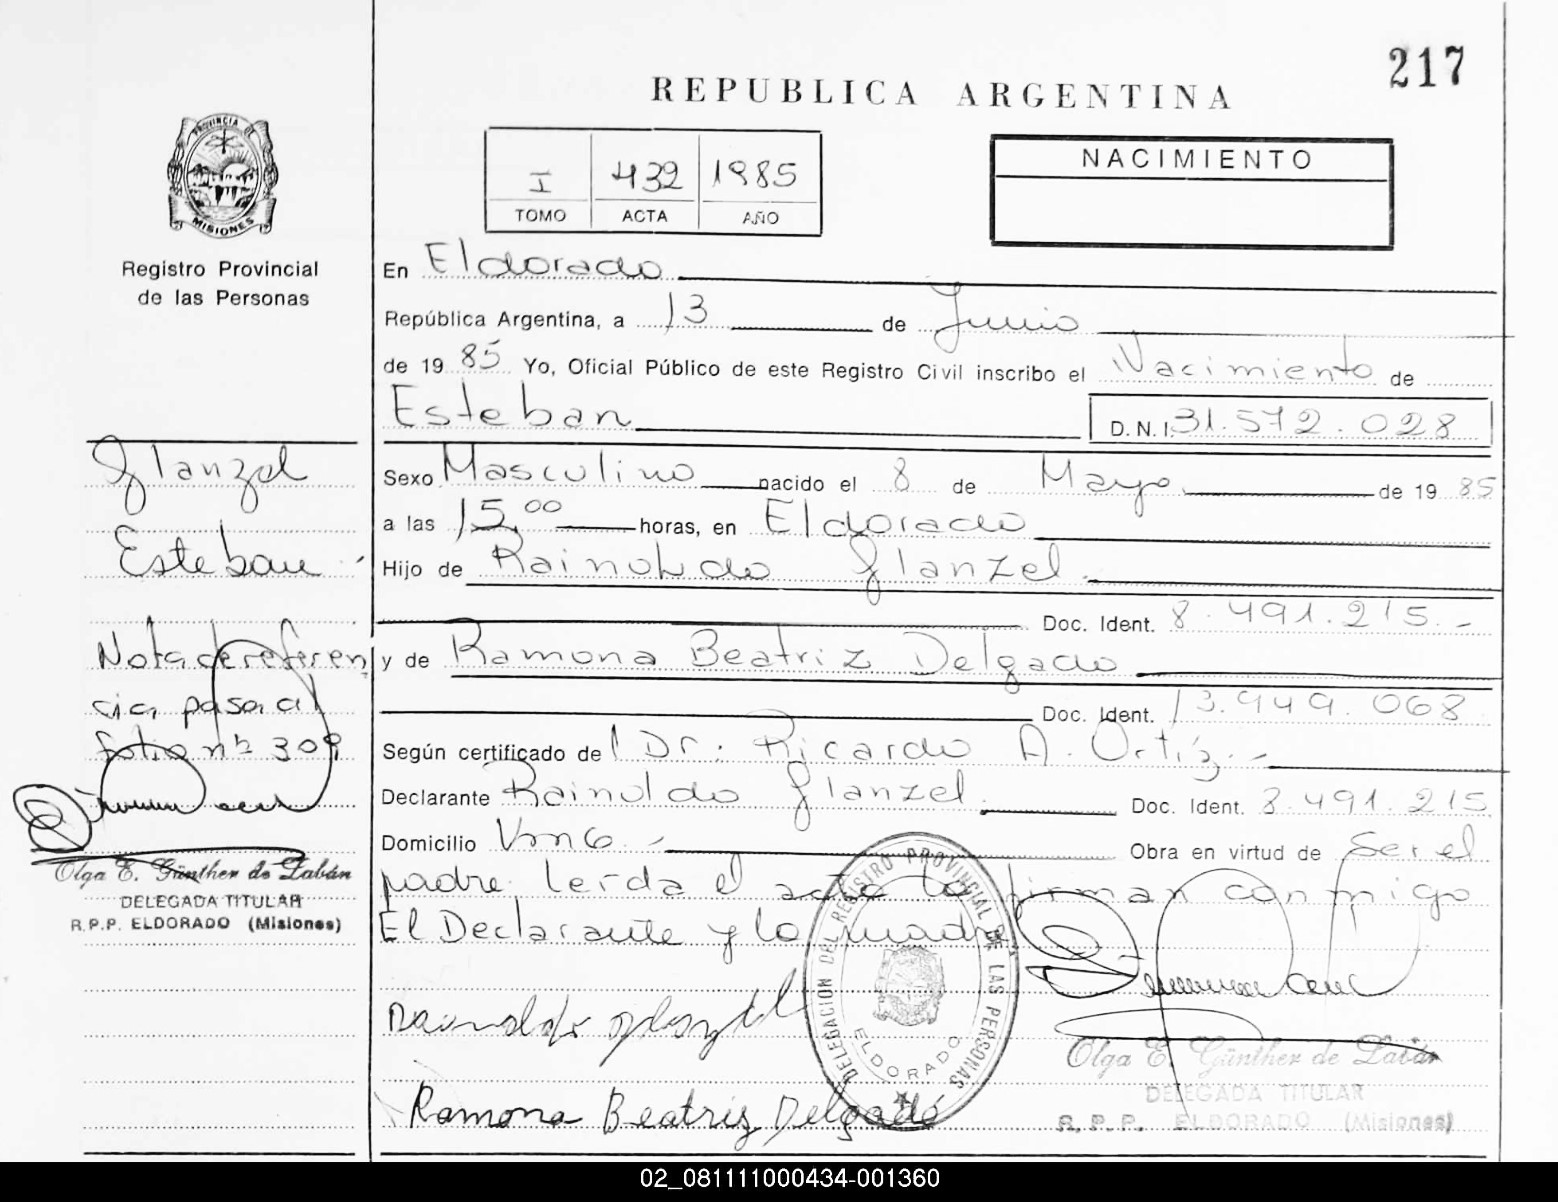 217
REPUBLICA ARGENTINA
I 432 1985
TOMO ACTA AÑO
NACIMIENTO
PROVINCIA DE
MISIONES
Registro Provincial
de las Personas
En Eldorado
República Argentina, a 13 de Junio
de 19 85 Yo, Oficial Público de este Registro Civil inscribo el Nacimiento de
Esteban D.N.I. 31.572.028
Glanzel
Esteban
Sexo Masculino nacido el 8 de Mayo de 19 85
a las 15,00 horas, en Eldorado
Hijo de Rainoldo Glanzel
Doc. Ident. 8.491.215.-
y de Ramona Beatriz Delgado
Doc. Ident. 13.949.068
Según certificado de Dr: Ricardo A. Ortíz.-
Declarante Rainoldo Glanzel Doc. Ident. 8.491.215
Domicilio Obra en virtud de Ser el
padre. Leída el acta la firman conmigo
El Declarante y la madre
Nota de referen
cia, pasa al
folio nº 309
Olga E. Günther de Labán
DELEGADA TITULAR
R.P.P. ELDORADO (Misiones)
DELEGACION DEL REGISTRO PROVINCIAL DE LAS PERSONAS
ELDORADO
Ramona Beatriz Delgado
Olga E. Günther de Labán
DELEGADA TITULAR
R.P.P. ELDORADO (Misiones)
02_081111000434-001360